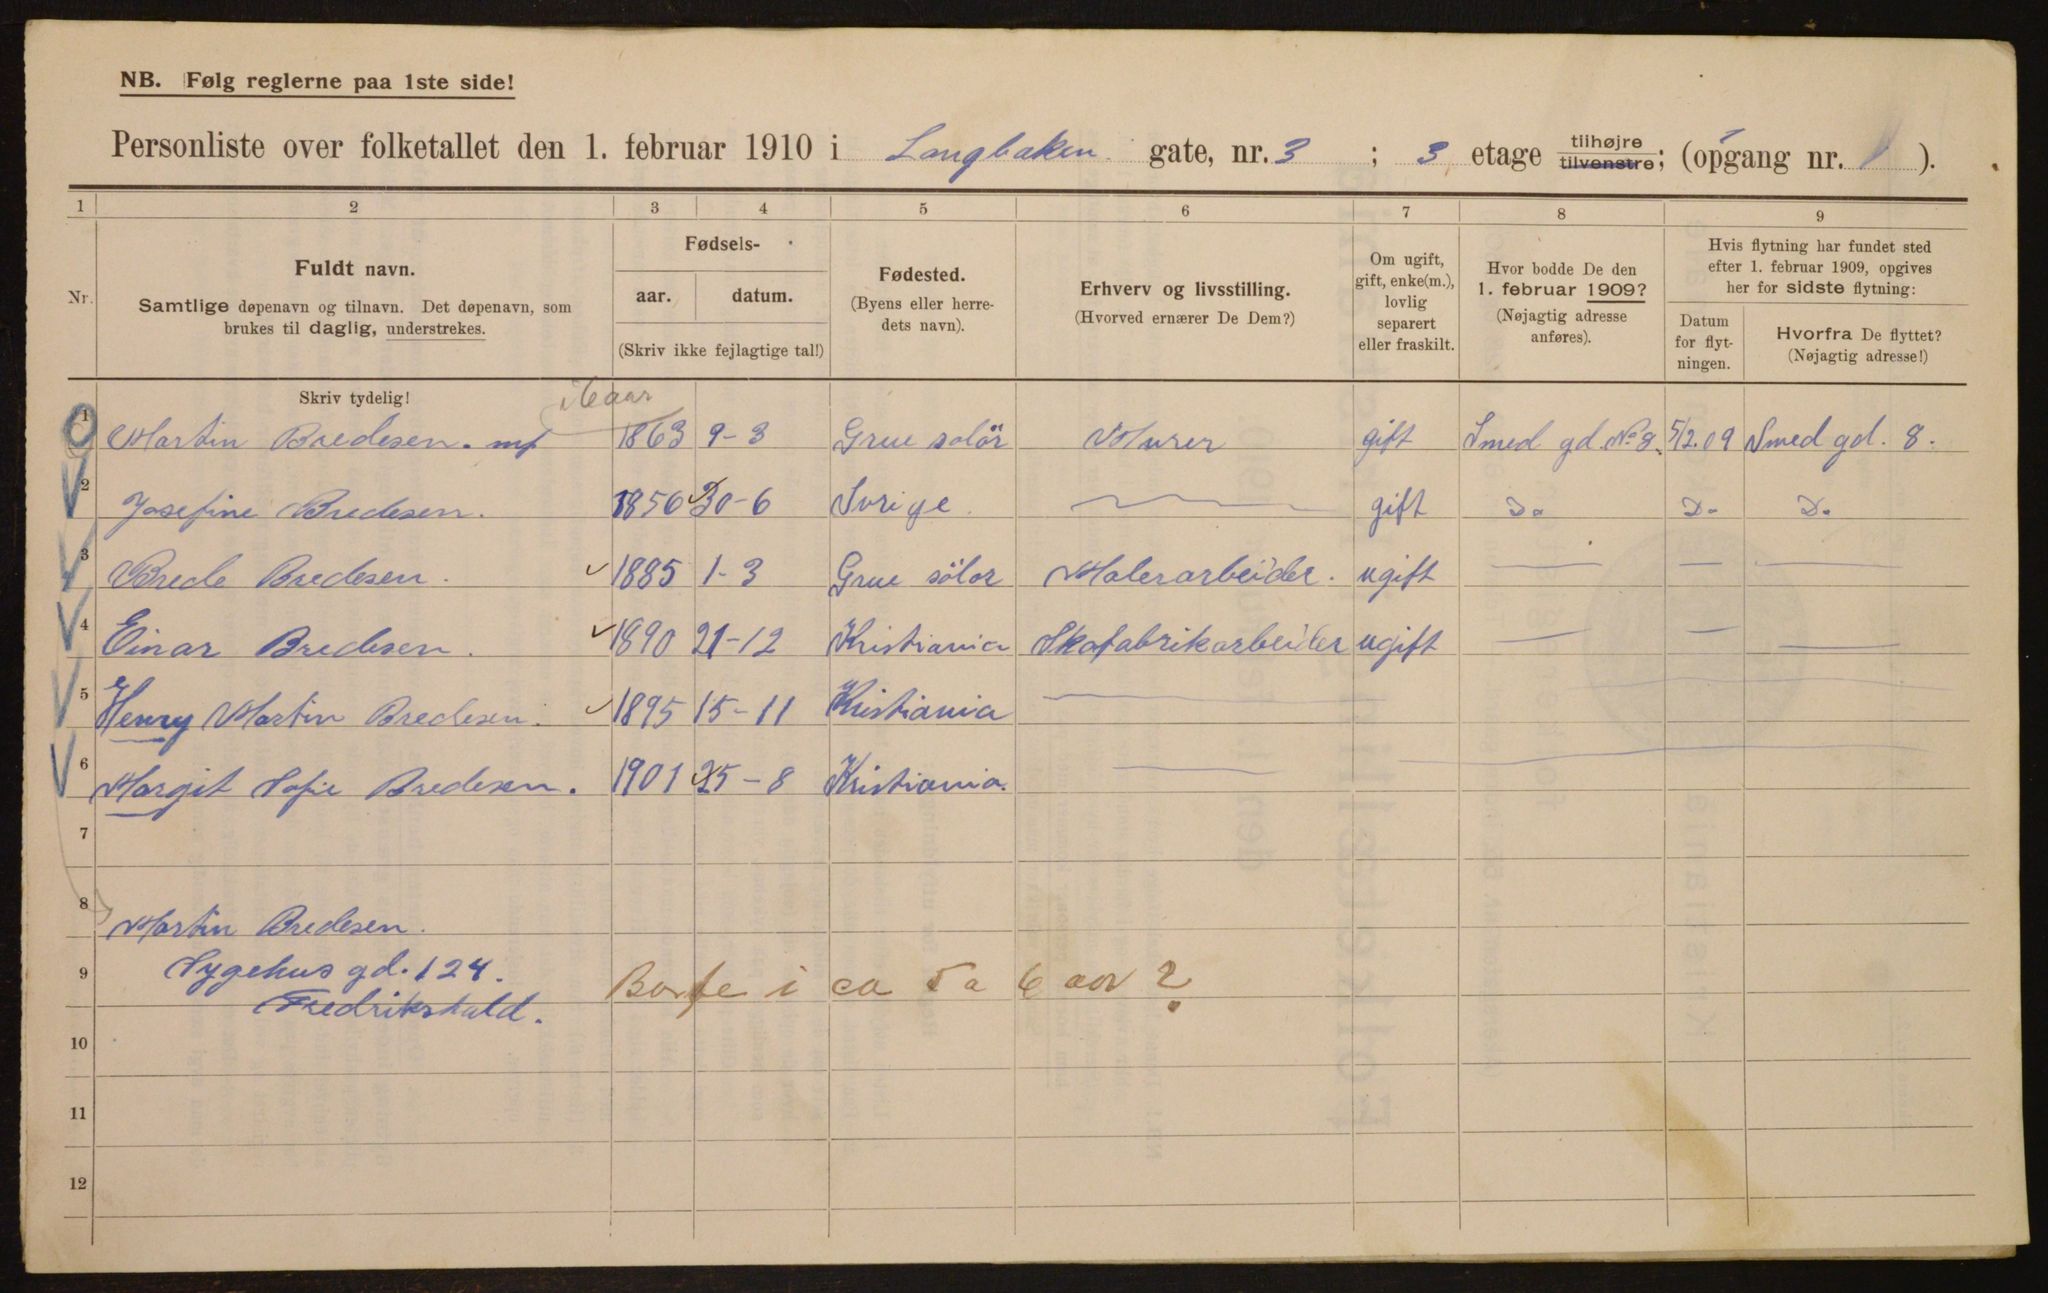 NB. Følg reglerne paa 1ste side!
Personliste over folketallet den 1. februar 1910 i Langbaken gate, nr. 3 ; 3 etage tilhøjre tilvenstre; (opgang nr. 1 ).
1 2 3 4 5 6 7 8 9
Nr.
Fuldt navn.
Samtlige døpenavn og tilnavn. Det døpenavn, som
brukes til daglig, understrekes.
Fødsels-
aar. datum.
(Skriv ikke fejlagtige tal!)
Fødested.
(Byens eller herre-
dets navn).
Erhverv og livsstilling.
(Hvorved ernærer De Dem?)
Om ugift,
gift, enke(m.),
lovlig
separert
eller fraskilt.
Hvor bodde De den
1. februar 1909?
(Nøjagtig adresse
anføres).
Hvis flytning har fundet sted
efter 1. februar 1909, opgives
her for sidste flytning:
Datum
for flyt-
ningen.
Hvorfra De flyttet?
(Nøjagtig adresse!)
Skriv tydelig!
1 Martin Bredesen. mf 1863 9-3 Grue solör Murer gift Smed gd. No 8. 5/2.09 Smed gd. 8.
2 Josefine Bredesen. 1856 30-6 Sverige. gift Do Do Do
3 Brede Bredesen. 1885 1-3 Grue sölor Malerarbeider. ugift
4 Einar Bredesen. 1890 21-12 Kristiania Skofabrikarbeider ugift
5 Henry Martin Bredesen. 1895 15-11 Kristiania
6 Margit Sofie Bredesen. 1901 25-8 Kristiania.
7
8 Martin Bredesen.
9 Sygehus gd. 124.
Fredrikshald.
Borte i ca 5 a 6 aar?
10
11
12